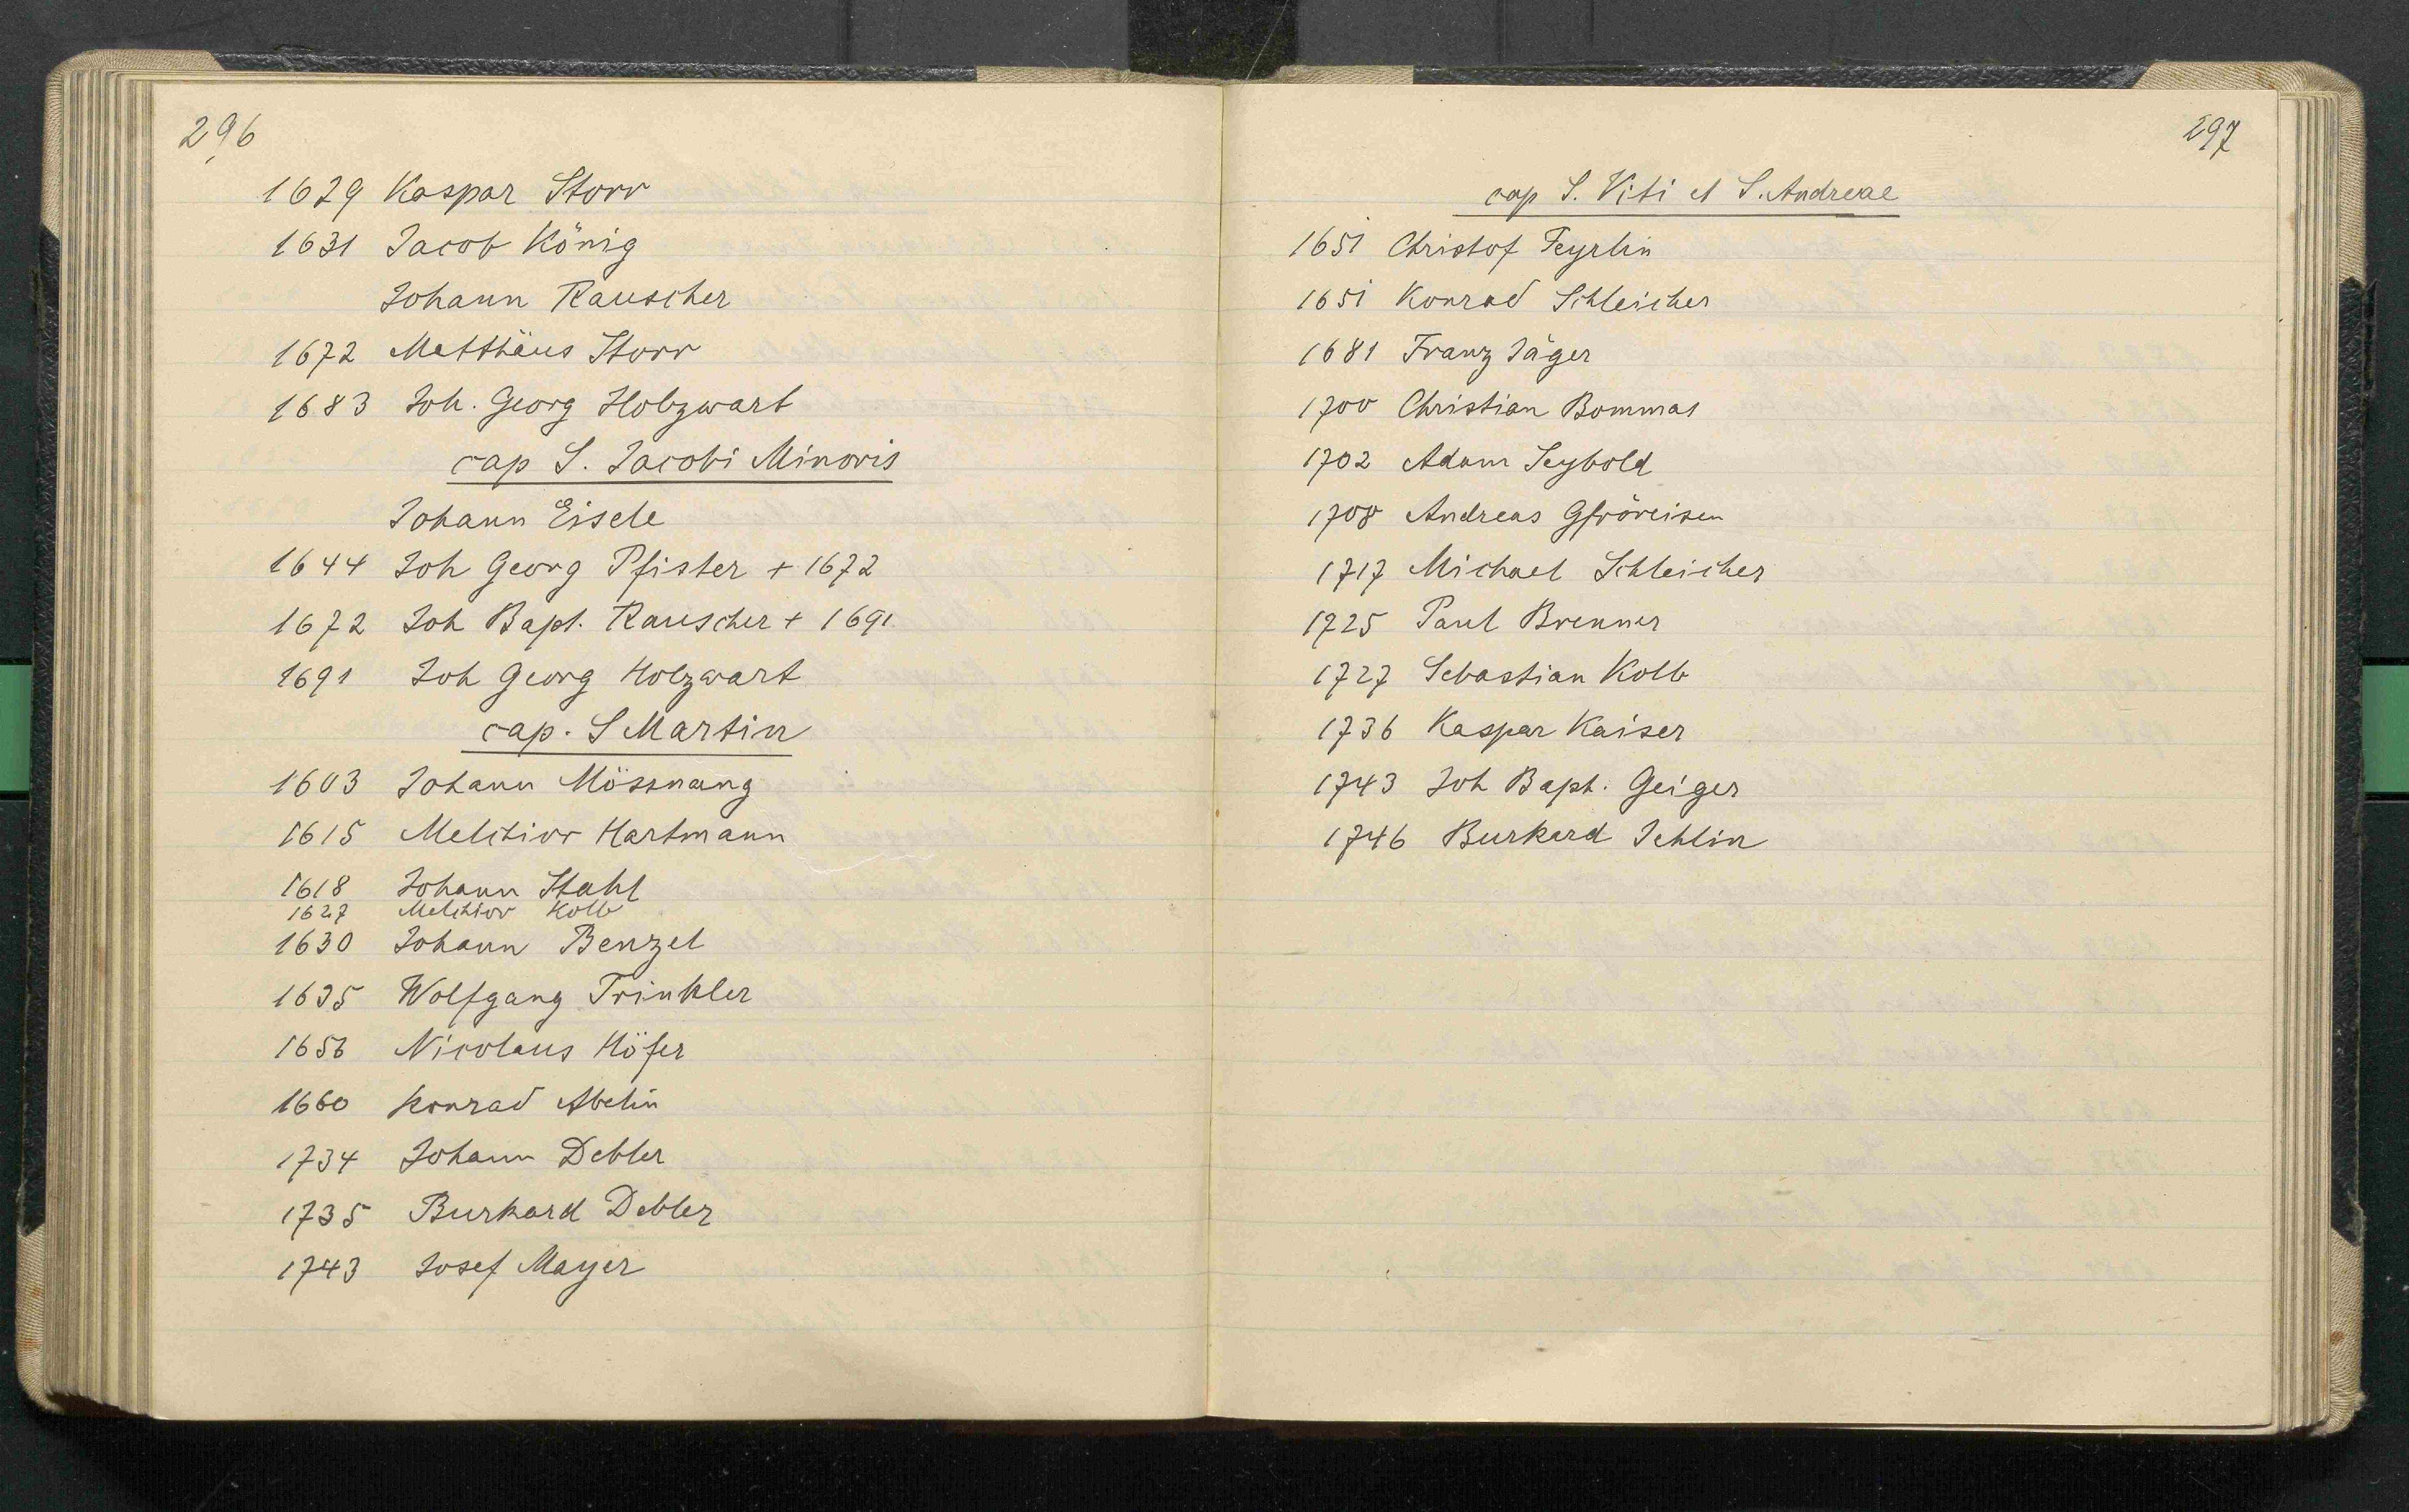 296
1629 Kaspar Storr
1631 Jacob König
Johann Rauscher
1672 Matthäus Storr
1683 Joh. Georg Holzwart
cap S. Jacobi Minoris
Johann Eisele
1644 Joh Georg Pfister + 1672
1672 Joh Bapt. Rauscher + 1691
1691 Joh Georg Holzwart
cap. S Martin
1603 Johann Mössnang
1615 Melchior Hartmann
1618 Johann Stahl
1627 Melchior Kolb
1630 Johann Benzel
1635 Wolfgang Trinkler
1656 Nicolaus Höfer
1660 Konrad Abelin
1734 Johann Debler
1735 Burkard Debler
1743 Josef Mayer
297
cap S. Viti et S. Andreae
1651 Christof Feyrlin
1651 Konrad Schleicher
1681 Franz Jäger
1700 Christian Bommas
1702 Adam Seybold
1708 Andreas Gfröreisen
1717 Michael Schleicher
1725 Paul Brenner
1727 Sebastian Kolb
1736 Kaspar Kaiser
1743 Joh Bapt. Geiger
1746 Burkard Jehlin